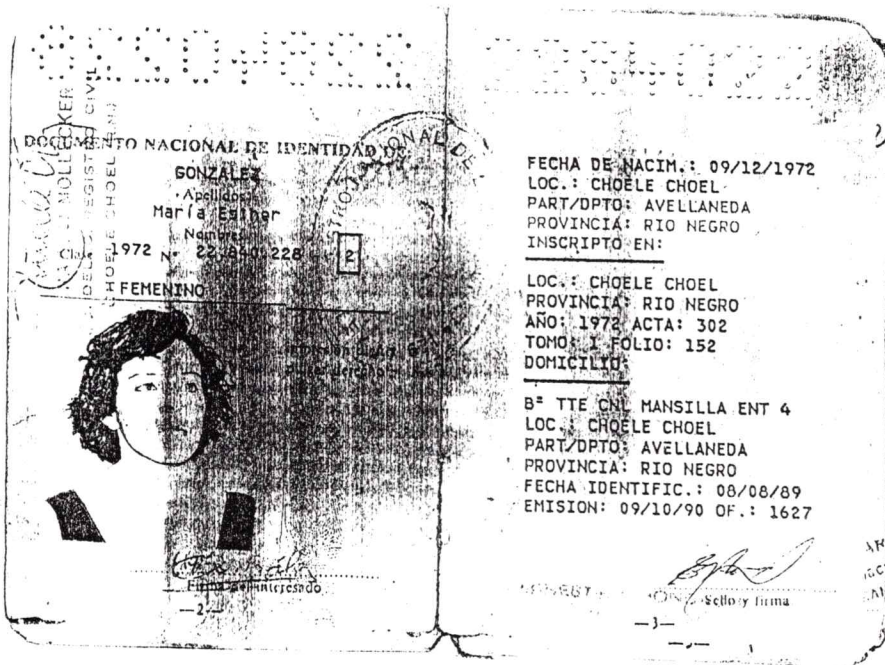 DOCUMENTO NACIONAL DE IDENTIDAD
GONZALEZ
Apellidos
María Esther
Nombres
1972 N° 22.840.228 2
FEMENINO
REGISTRO CIVIL
CHOELE CHOEL
Firma del interesado
—2—
FECHA DE NACIM.: 09/12/1972
LOC.: CHOELE CHOEL
PART/DPTO: AVELLANEDA
PROVINCIA: RIO NEGRO
INSCRIPTO EN:
LOC.: CHOELE CHOEL
PROVINCIA: RIO NEGRO
AÑO: 1972 ACTA: 302
TOMO: I FOLIO: 152
DOMICILIO:
Bº TTE CNL MANSILLA ENT 4
LOC.: CHOELE CHOEL
PART/DPTO: AVELLANEDA
PROVINCIA: RIO NEGRO
FECHA IDENTIFIC.: 08/08/89
EMISION: 09/10/90 OF.: 1627
Sello y firma
—3—